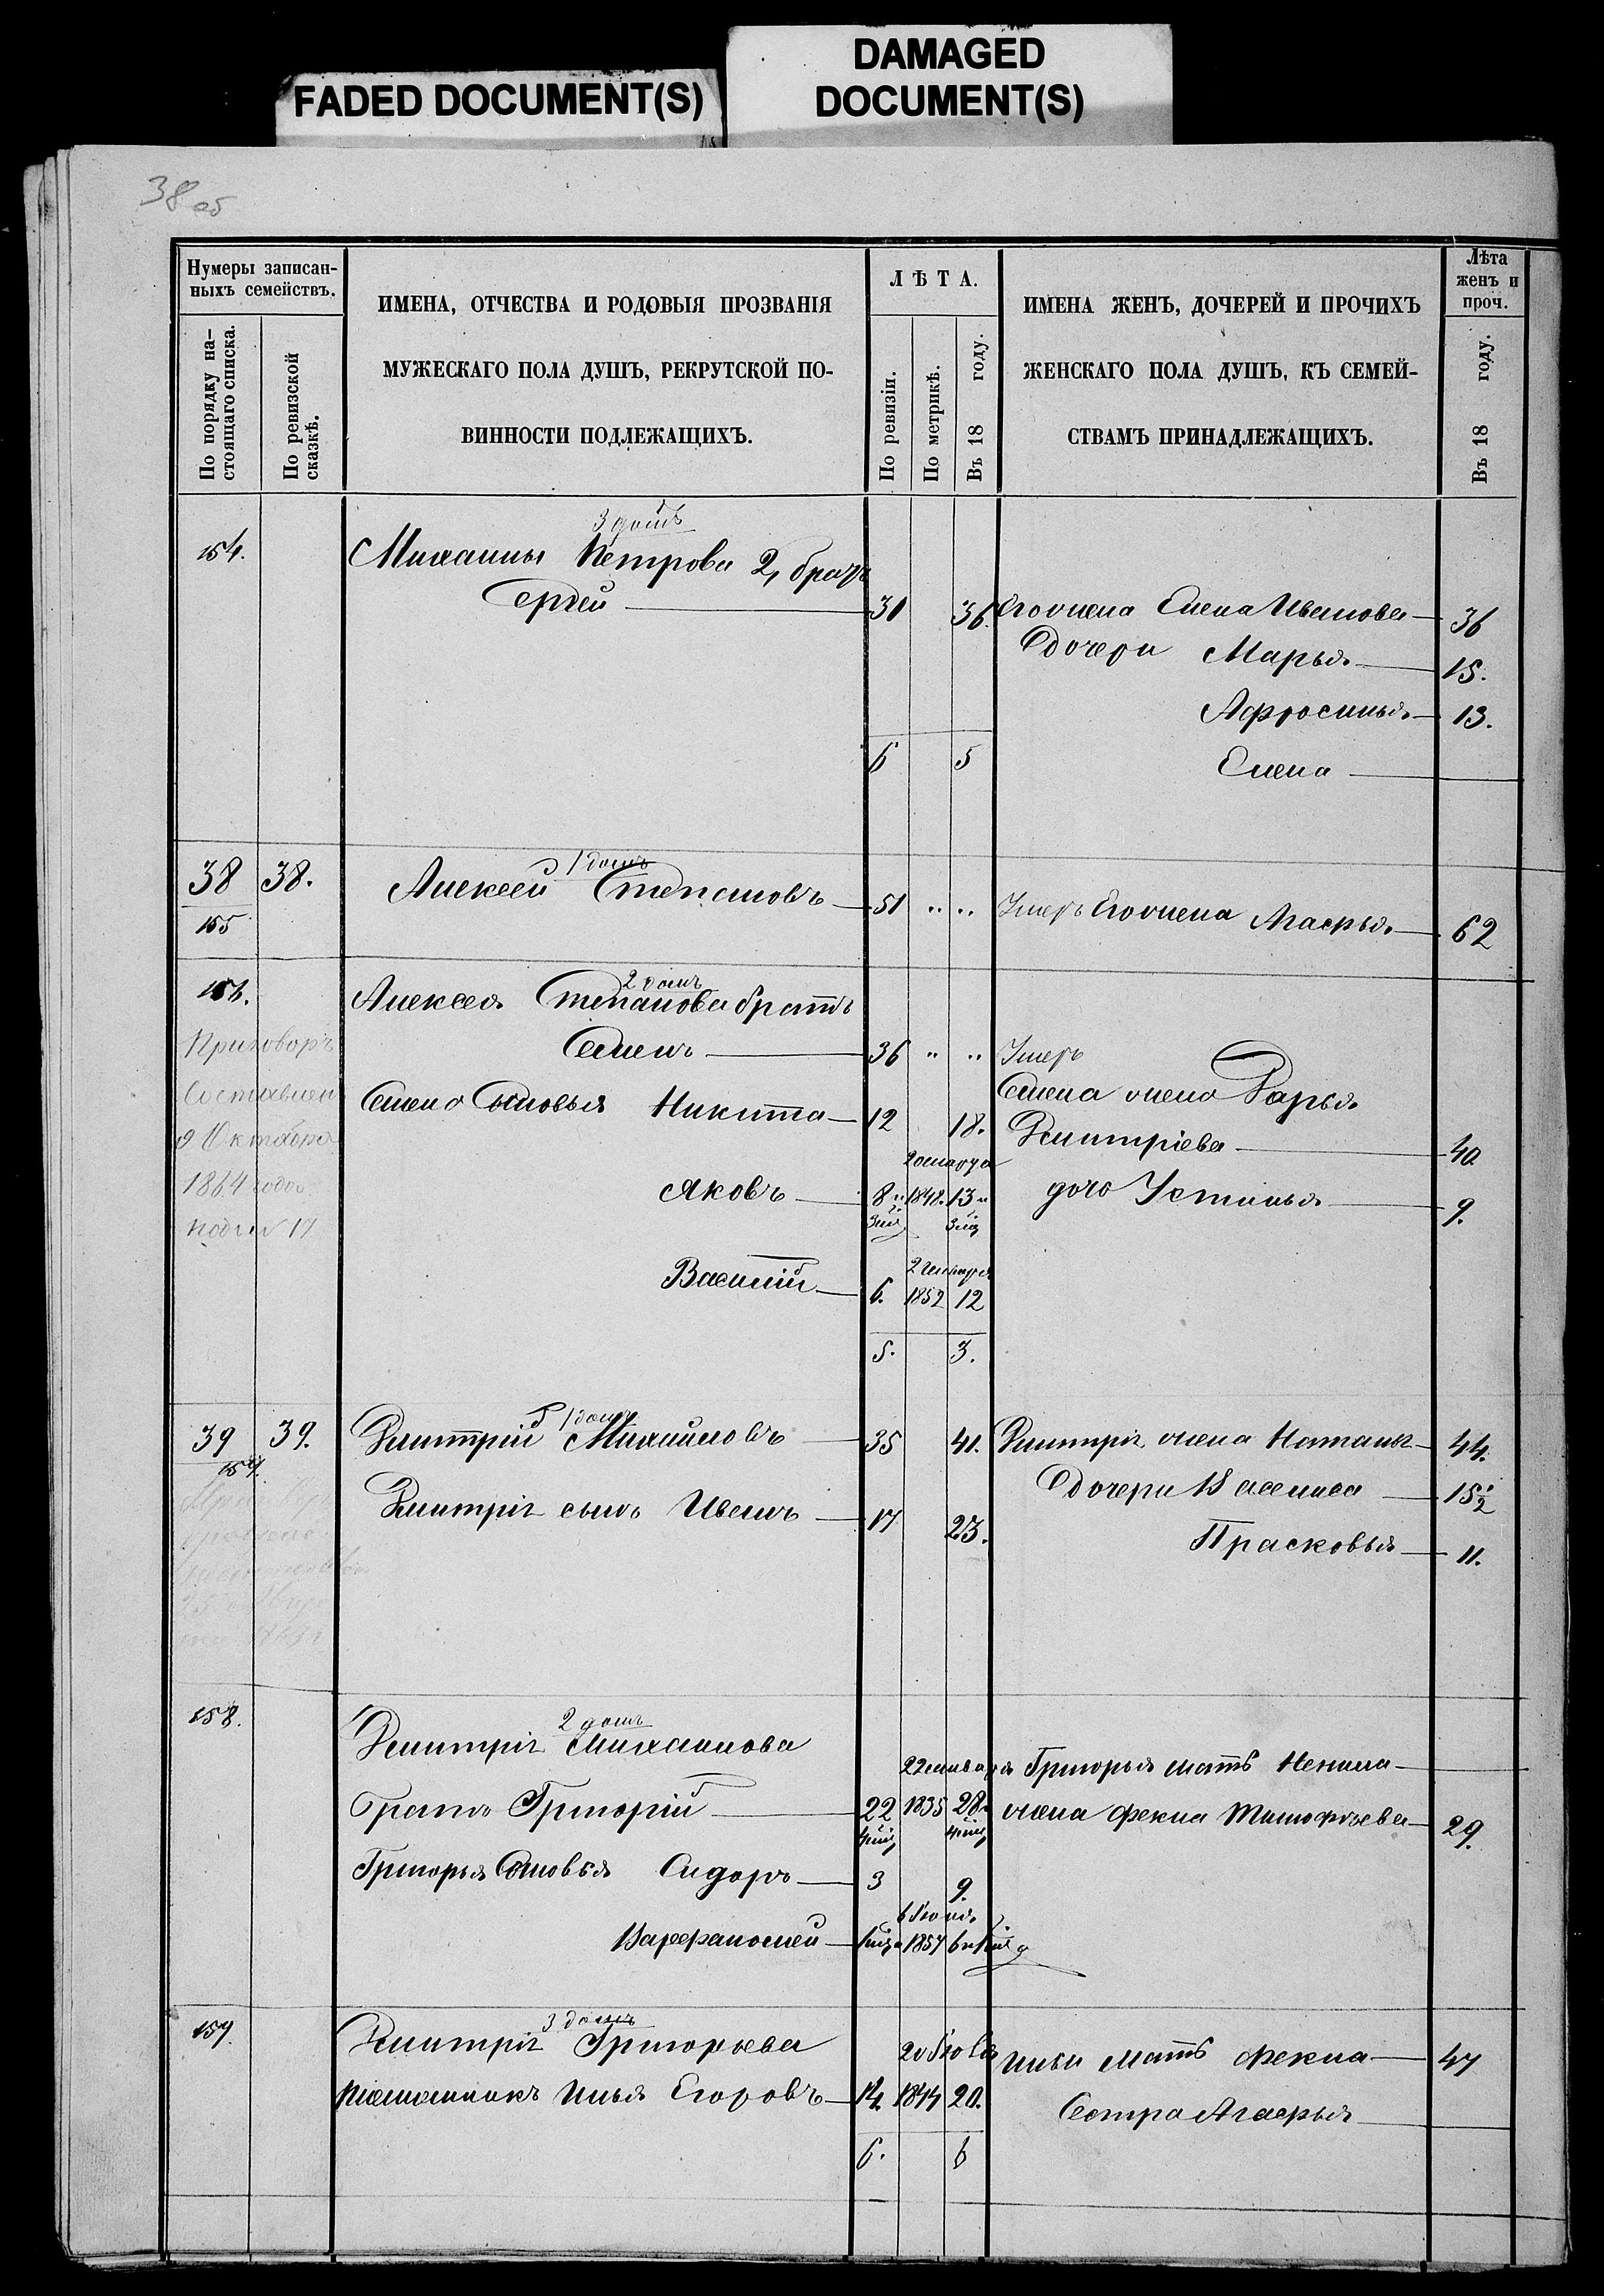 FADED DOCUMENT(S)
DAMAGED
DOCUMENT(S)
38 об
Нумеры записан-
ныхъ семействъ.
По порядку на-
стоящаго списка.
По ревизской
сказкѣ.
ИМЕНА, ОТЧЕСТВА И РОДОВЫЯ ПРОЗВАНІЯ
МУЖЕСКАГО ПОЛА ДУШЪ, РЕКРУТСКОЙ ПО-
ВИННОСТИ ПОДЛЕЖАЩИХЪ.
ЛѢТА.
По ревизіи.
По метрикѣ.
Въ 18 году.
ИМЕНА ЖЕНЪ, ДОЧЕРЕЙ И ПРОЧИХЪ
ЖЕНСКАГО ПОЛА ДУШЪ, КЪ СЕМЕЙ-
СТВАМЪ ПРИНАДЛЕЖАЩИХЪ.
Лѣта
женъ и
проч.
Въ 18 году.
3 домъ
154. Михаилы Петрова 2, братъ
Сергей 30 36. Его жена Елена Иванова 36
Дочери Марья 15.
Афросинья 13.
6 5 Елена
1 домъ
38 38. Алексей Степановъ 51 " " Умеръ Его жена Агафья 62
155
2 домъ
156. Алексея Степанова братъ
Семенъ 36 " " Умеръ
Приговоръ
Составлен
9 Октября
1864 года
Семена Сыновья Никита 12 18.
Семена жена Дарья
Дмитріева 40
Яковъ 8 1848. 13
дочь Устинья 9.
Василій 6. 1852 12
5. 3.
1 домъ
39 39. Дмитрій Михайловъ 35 41. Дмитрія жена Наталья 44.
157.
Дочери Василиса 15 1/2
Дмитрія сынъ Иванъ 17 23.
Прасковья 11.
2 домъ
158. Дмитрія Михаилова
22 января Григорья мать Ненила
братъ Григорій 22 1835 28. жена Фекла Тимофѣева 29.
Григорья Сыновья Сидоръ 3 9.
6 Іюня
Варфаломей 1857
3 домъ
159. Дмитрія Григорьева
20 Іюля Ильи мать Фекла 47
племянникъ Илья Егоровъ 14. 1844 20.
Сестра Агафья
6. 6